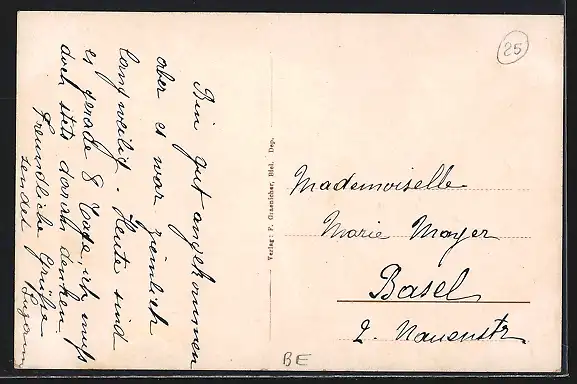 Bin gut angekommen
aber es war ziemlich
langweilig. Heute sind
es gerade 8 Tage, ich muß
doch stets daran denken
Freundliche Grüße
sendet
Verlag: F. Graenicher, Biel. Dep.
25
Mademoiselle
Marie Mayer
Basel
2. Nauenstr.
BE